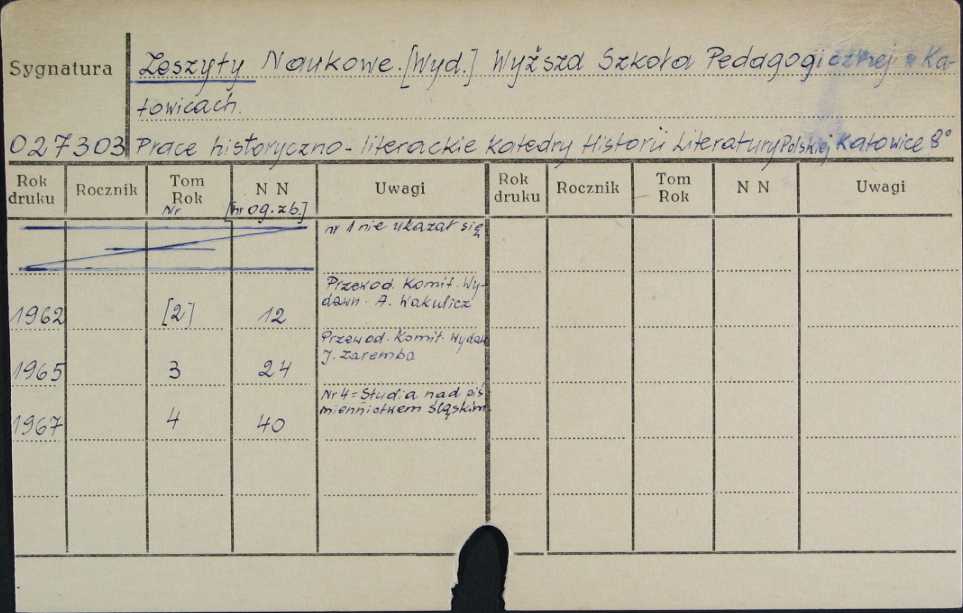 Sygnatura
Zeszyty Naukowe. [Wyd.] Wyższa Szkoła Pedagogicznej w Ka-
towicach.
027303 Prace historyczno-literackie Katedry Historii Literatury Polskiej Katowice 8°
Rok druku Rocznik Tom Rok Nr N N [nr og. zb.] Uwagi Rok druku Rocznik Tom Rok N N Uwagi
nr 1 nie ukazał się
Przewod. Komit. Wy-
dawn. A. Wakulicz
1962 [2] 12
Przewod. Komit. Wydaw
J. Zaremba
1965 3 24
Nr 4 = Studia nad piś-
miennictwem śląskim.
1967 4 40